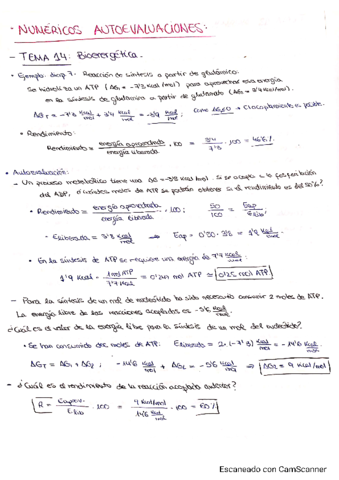 · NUMÉRICOS AUTOEVALUACIONES:
- TEMA 14: Bioenergética.
· Ejemplo diap 7. Reacción de síntesis a partir de glutámico.
Se hidroliza un ATP (ΔG₁ = -7'3 kcal/mol) para aprovechar esa energía
en la síntesis de glutamina a partir de glutamato (ΔG₂ = 3'4 kcal/mol).
ΔG_T = -7'3 kcal/mol + 3'4 kcal/mol = -3'9 kcal/mol ; como ΔG<0 → acoplamiento es posible.
· Rendimiento:
Rendimiento = energía aprovechada / energía liberada · 100 = 3'4 / 7'3 · 100 = 46%
· Autoevaluación:
- Un proceso metabólico tiene una ΔG = -3'8 kcal/mol. Si se acopla a la fosforilación
del ADP, ¿cuántos moles de ATP se podrán obtener si el rendimiento es del 50%?
· Rendimiento = energía aprovechada / energía liberada · 100 ; 50/100 = Eap / Elib
· Eliberada = 3'8 kcal/mol ⇒ Eap = 0'50 · 3'8 = 1'9 kcal/mol
· En la síntesis de ATP se requiere una energía de 7'7 kcal/mol
1'9 kcal · 1 mol ATP / 7'7 kcal = 0'24 mol ATP ≃ 0'25 mol ATP
- Para la síntesis de un mol de nucleótido ha sido necesario consumir 2 moles de ATP.
La energía libre de las reacciones acopladas es -5'6 kcal/mol
¿Cuál es el valor de la energía libre para la síntesis de un mol del nucleótido?
· Se han consumido dos moles de ATP: Eliberada = 2·(-7'3) kcal/mol = -14'6 kcal/mol
ΔG_T = ΔG₁ + ΔG₂ ; -14'6 kcal/mol + ΔG₂ = -5'6 kcal/mol ⇒ ΔG₂ = 9 kcal/mol
- ¿Cuál es el rendimiento de la reacción acoplada anterior?
R = Eaprov. / Elib · 100 = 9 kcal/mol / 14'6 kcal/mol · 100 = 60%
Escaneado con CamScanner